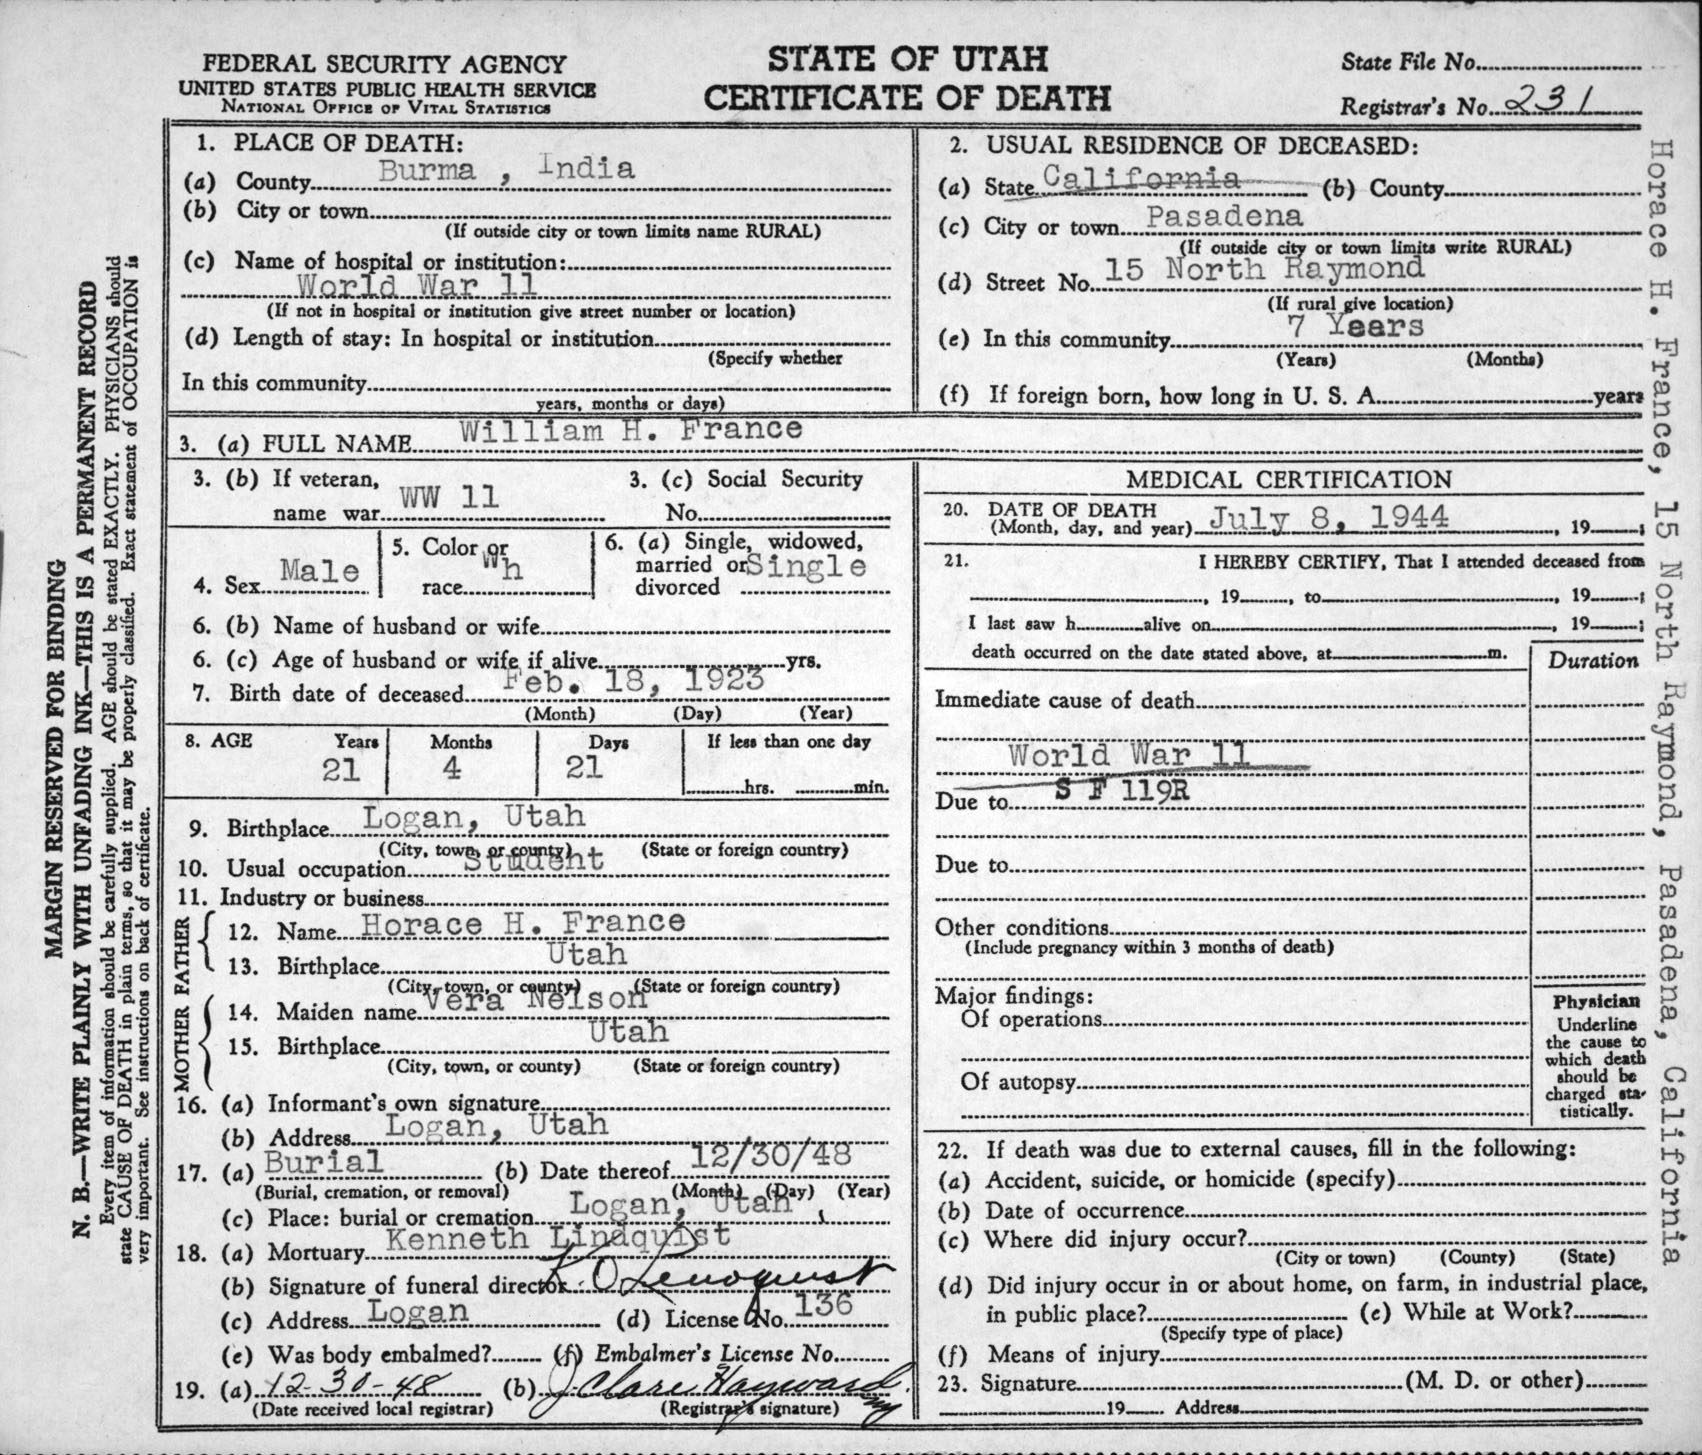 FEDERAL SECURITY AGENCY
UNITED STATES PUBLIC HEALTH SERVICE
NATIONAL OFFICE OF VITAL STATISTICS
STATE OF UTAH
CERTIFICATE OF DEATH
State File No.
Registrar's No. 231
1. PLACE OF DEATH:
(a) County Burma , India
(b) City or town
(If outside city or town limits name RURAL)
(c) Name of hospital or institution:
World War 11
(If not in hospital or institution give street number or location)
(d) Length of stay: In hospital or institution
(Specify whether
In this community
years, months or days)
2. USUAL RESIDENCE OF DECEASED:
(a) State California (b) County
(c) City or town Pasadena
(If outside city or town limits write RURAL)
(d) Street No. 15 North Raymond
(If rural give location)
(e) In this community 7 Years
(Years) (Months)
(f) If foreign born, how long in U. S. A. years
3. (a) FULL NAME William H. France
3. (b) If veteran,
name war WW 11
3. (c) Social Security
No.
4. Sex Male
5. Color or
race Wh
6. (a) Single, widowed,
married or Single
divorced
6. (b) Name of husband or wife
6. (c) Age of husband or wife if alive yrs.
7. Birth date of deceased Feb. 18, 1923
(Month) (Day) (Year)
8. AGE Years Months Days If less than one day
21 4 21 hrs. min.
9. Birthplace Logan, Utah
(City, town, or county) (State or foreign country)
10. Usual occupation Student
11. Industry or business
FATHER
12. Name Horace H. France
13. Birthplace Utah
(City, town, or county) (State or foreign country)
MOTHER
14. Maiden name Vera Nelson
15. Birthplace Utah
(City, town, or county) (State or foreign country)
16. (a) Informant's own signature
(b) Address Logan, Utah
17. (a) Burial (b) Date thereof 12/30/48
(Burial, cremation, or removal) (Month) (Day) (Year)
(c) Place: burial or cremation Logan, Utah
18. (a) Mortuary Kenneth Lindquist
(b) Signature of funeral director K. O. Lindquist
(c) Address Logan (d) License No. 136
(e) Was body embalmed? (f) Embalmer's License No.
19. (a) 12-30-48 (b) J. Clare Hayward
(Date received local registrar) (Registrar's signature)
MEDICAL CERTIFICATION
20. DATE OF DEATH
(Month, day, and year) July 8, 1944 , 19 ;
21. I HEREBY CERTIFY, That I attended deceased from
, 19 , to , 19 ;
I last saw h alive on , 19 ;
death occurred on the date stated above, at m.
Duration
Immediate cause of death
World War 11
S F 119R
Due to
Due to
Other conditions
(Include pregnancy within 3 months of death)
Major findings:
Of operations
Of autopsy
Physician
Underline
the cause to
which death
should be
charged sta-
tistically.
22. If death was due to external causes, fill in the following:
(a) Accident, suicide, or homicide (specify)
(b) Date of occurrence
(c) Where did injury occur?
(City or town) (County) (State)
(d) Did injury occur in or about home, on farm, in industrial place,
in public place? (e) While at Work?
(Specify type of place)
(f) Means of injury
23. Signature (M. D. or other)
19 Address
MARGIN RESERVED FOR BINDING
N. B.—WRITE PLAINLY WITH UNFADING INK—THIS IS A PERMANENT RECORD
Every item of information should be carefully supplied. AGE should be stated EXACTLY. PHYSICIANS should
state CAUSE OF DEATH in plain terms, so that it may be properly classified. Exact statement of OCCUPATION is
very important. See instructions on back of certificate.
Horace H. France, 15 North Raymond, Pasadena, California